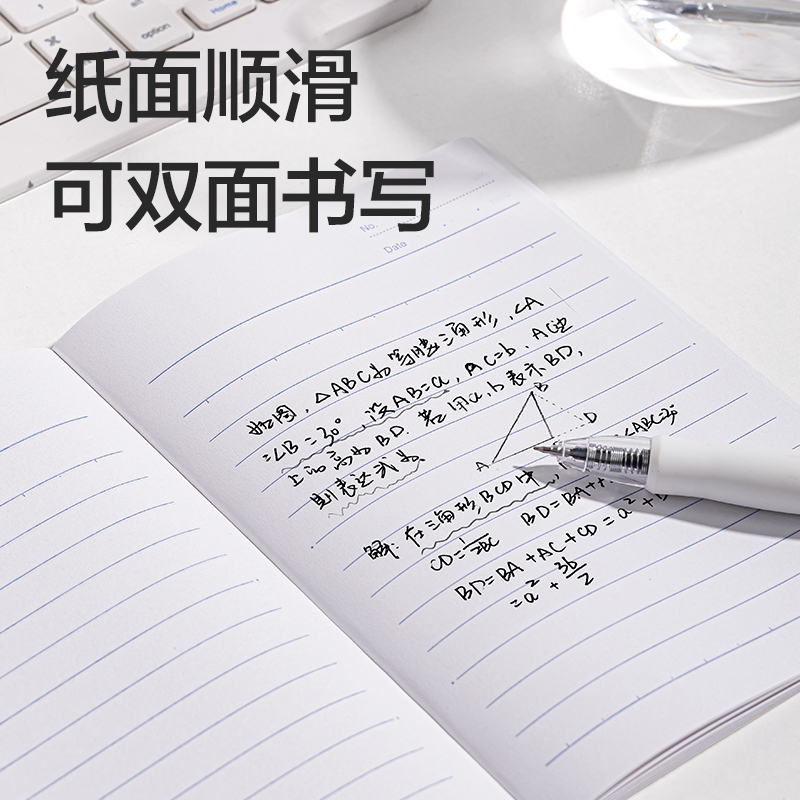 纸面顺滑
可双面书写
control
option
Home
No.
Date
如图，△ABC为等腰三角形，∠A
=∠B=30°，设AB=a，AC=b，AC边
上的高为BD. 若用a、b表示BD，
则表达式为
B
D
A
∠ABC=30°
解：在三角形BCD中
BD=BA+
CD=1/2BC
BD=BA+AC+CD=a²+b
=a²+3b/2